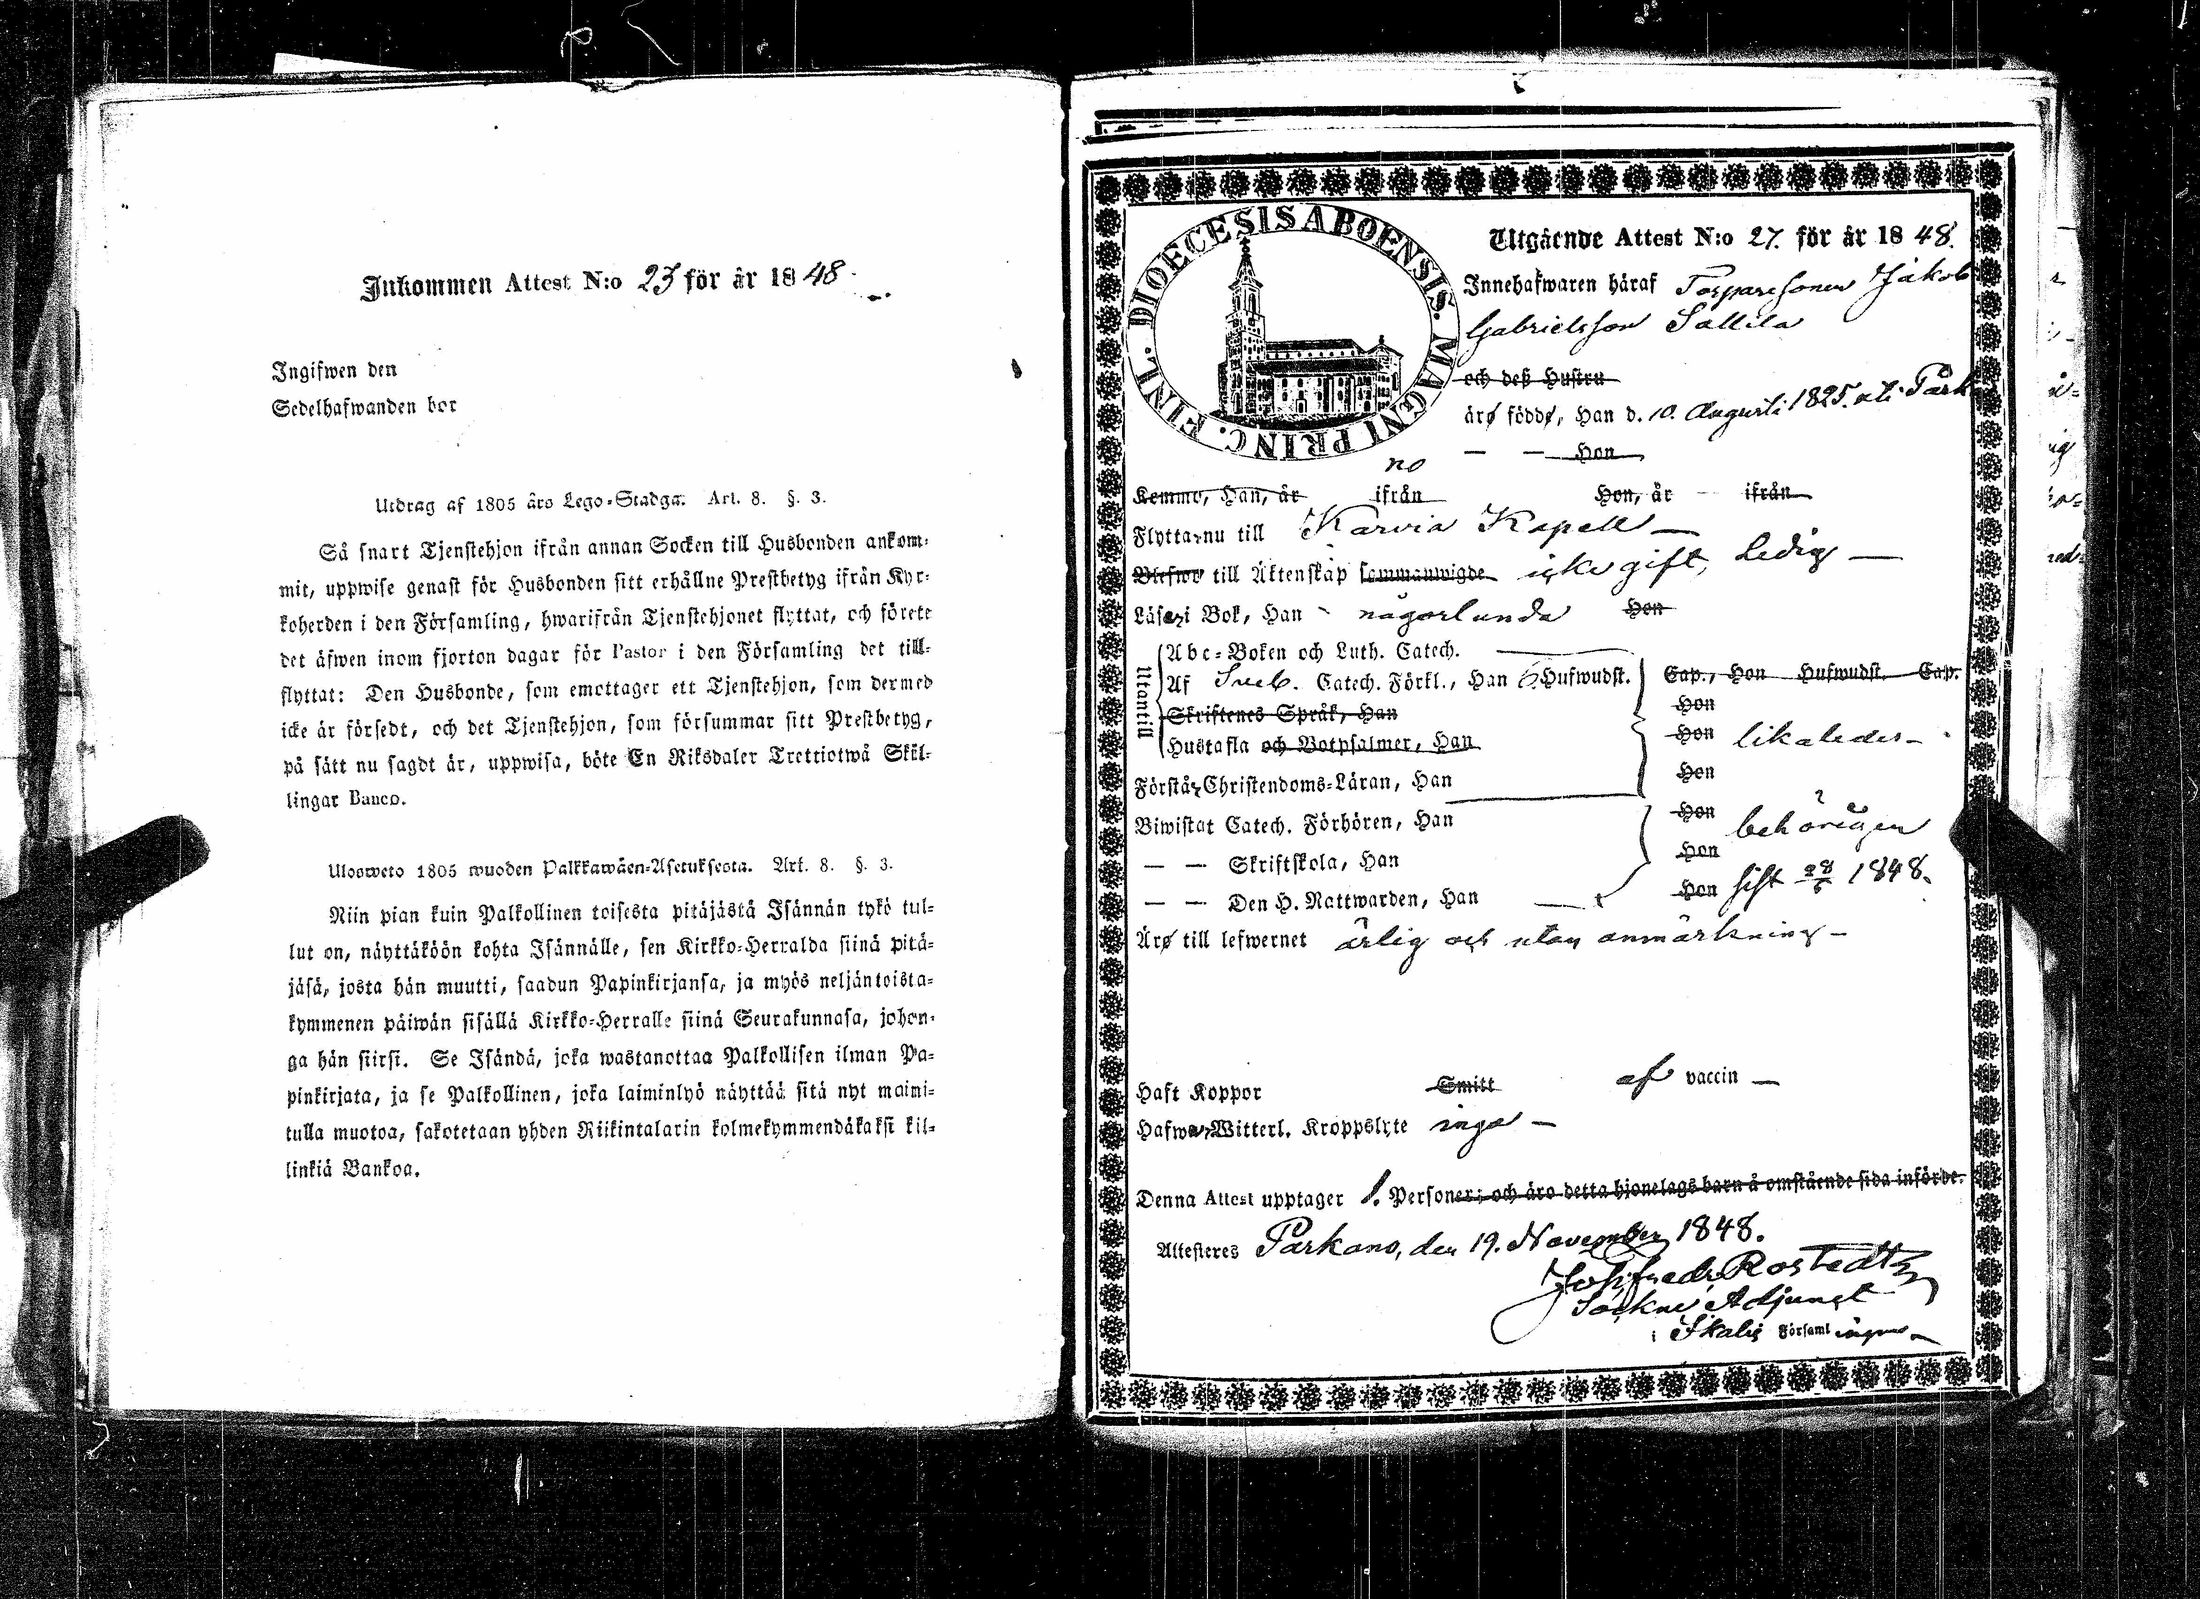 Inkommen Attest N:o 23 för år 1848.
Ingifwen den
Sedelhafwanden bor
Utdrag af 1805 års Lego-Stadga. Art. 8. §. 3.
Så snart Tjenstehjon ifrån annan Socken till Husbonden ankom-
mit, uppwise genast för Husbonden sitt erhållne Prestbetyg ifrån Kyr-
koherden i den Församling, hwarifrån Tjenstehjonet flyttat, och förete
det äfwen inom fjorton dagar för Pastor i den Församling det till-
flyttat: Den Husbonde, som emottager ett Tjenstehjon, som dermed
icke är försedt, och det Tjenstehjon, som försummar sitt Prestbetyg,
på sätt nu sagdt är, uppwisa, böte En Riksdaler Trettiotwå Skil-
lingar Banco.
Ulosweto 1805 wuoden Palkkawäen-Asetuksesta. Art. 8. §. 3.
Niin pian kuin Palkollinen toisesta pitäjästä Isännän tykö tul-
lut on, näyttäköön kohta Isännälle, sen Kirkko-Herralda siinä pitä-
jäsä, josta hän muutti, saadun Papinkirjansa, ja myös neljäntoista-
kymmenen päiwän sisällä Kirkko-Herralle siinä Seurakunnasa, johon-
ga hän siirsi. Se Isändä, joka wastanottaa Palkollisen ilman Pa-
pinkirjata, ja se Palkollinen, joka laiminlyö näyttää sitä nyt maini-
tulla muotoa, sakotetaan yhden Riikintalarin kolmekymmendäkaksi kil-
linkiä Bankoa.
DIOECESIS ABOENSIS. MAGNI PRINC. FINL.
Utgående Attest N:o 27. för år 1848.
Innehafwaren häraf Torparesonen Jakob
Gabrielsson Sallila
och deß Hustru
äro födde, Han d. 10. Augusti 1825. uti Park
no
— — Hon
Kemmo, Han, år ifrån Hon, år ifrån
Flytta nu till Karvia Kapell —
Blefwo till Äktenskap sammanwigde icke gift, ledig —
Läser i Bok, Han någorlunda Hon
Utantill
Abc-Boken och Luth. Catech.
Af Sveb. Catech. Förkl., Han 6 Hufwudst. Cap., Hon Hufwudst. Cap.
Skriftenes Språk, Han Hon
Hustafla och Botpsalmer, Han Hon likaledes —
Förstår Christendoms-Läran, Han Hon
Biwistat Catech. Förhören, Han Hon behörigen
— — Skriftskola, Han Hon
— — Den H. Nattwarden, Han Hon sist 1848.
Äro till lefwernet ärlig och utan anmärkning —
Haft Koppor Smitt af vaccin —
Hafwa Witterl. Kroppslyte inga —
Denna Attest upptager 1. Personer; och äro detta hjonelags barn å omstående sida införde.
Attesteres Parkano, den 19. November 1848.
Joh. Fredr. Rostedt
Sockne Adjunct
i Ikalis Församlingen —